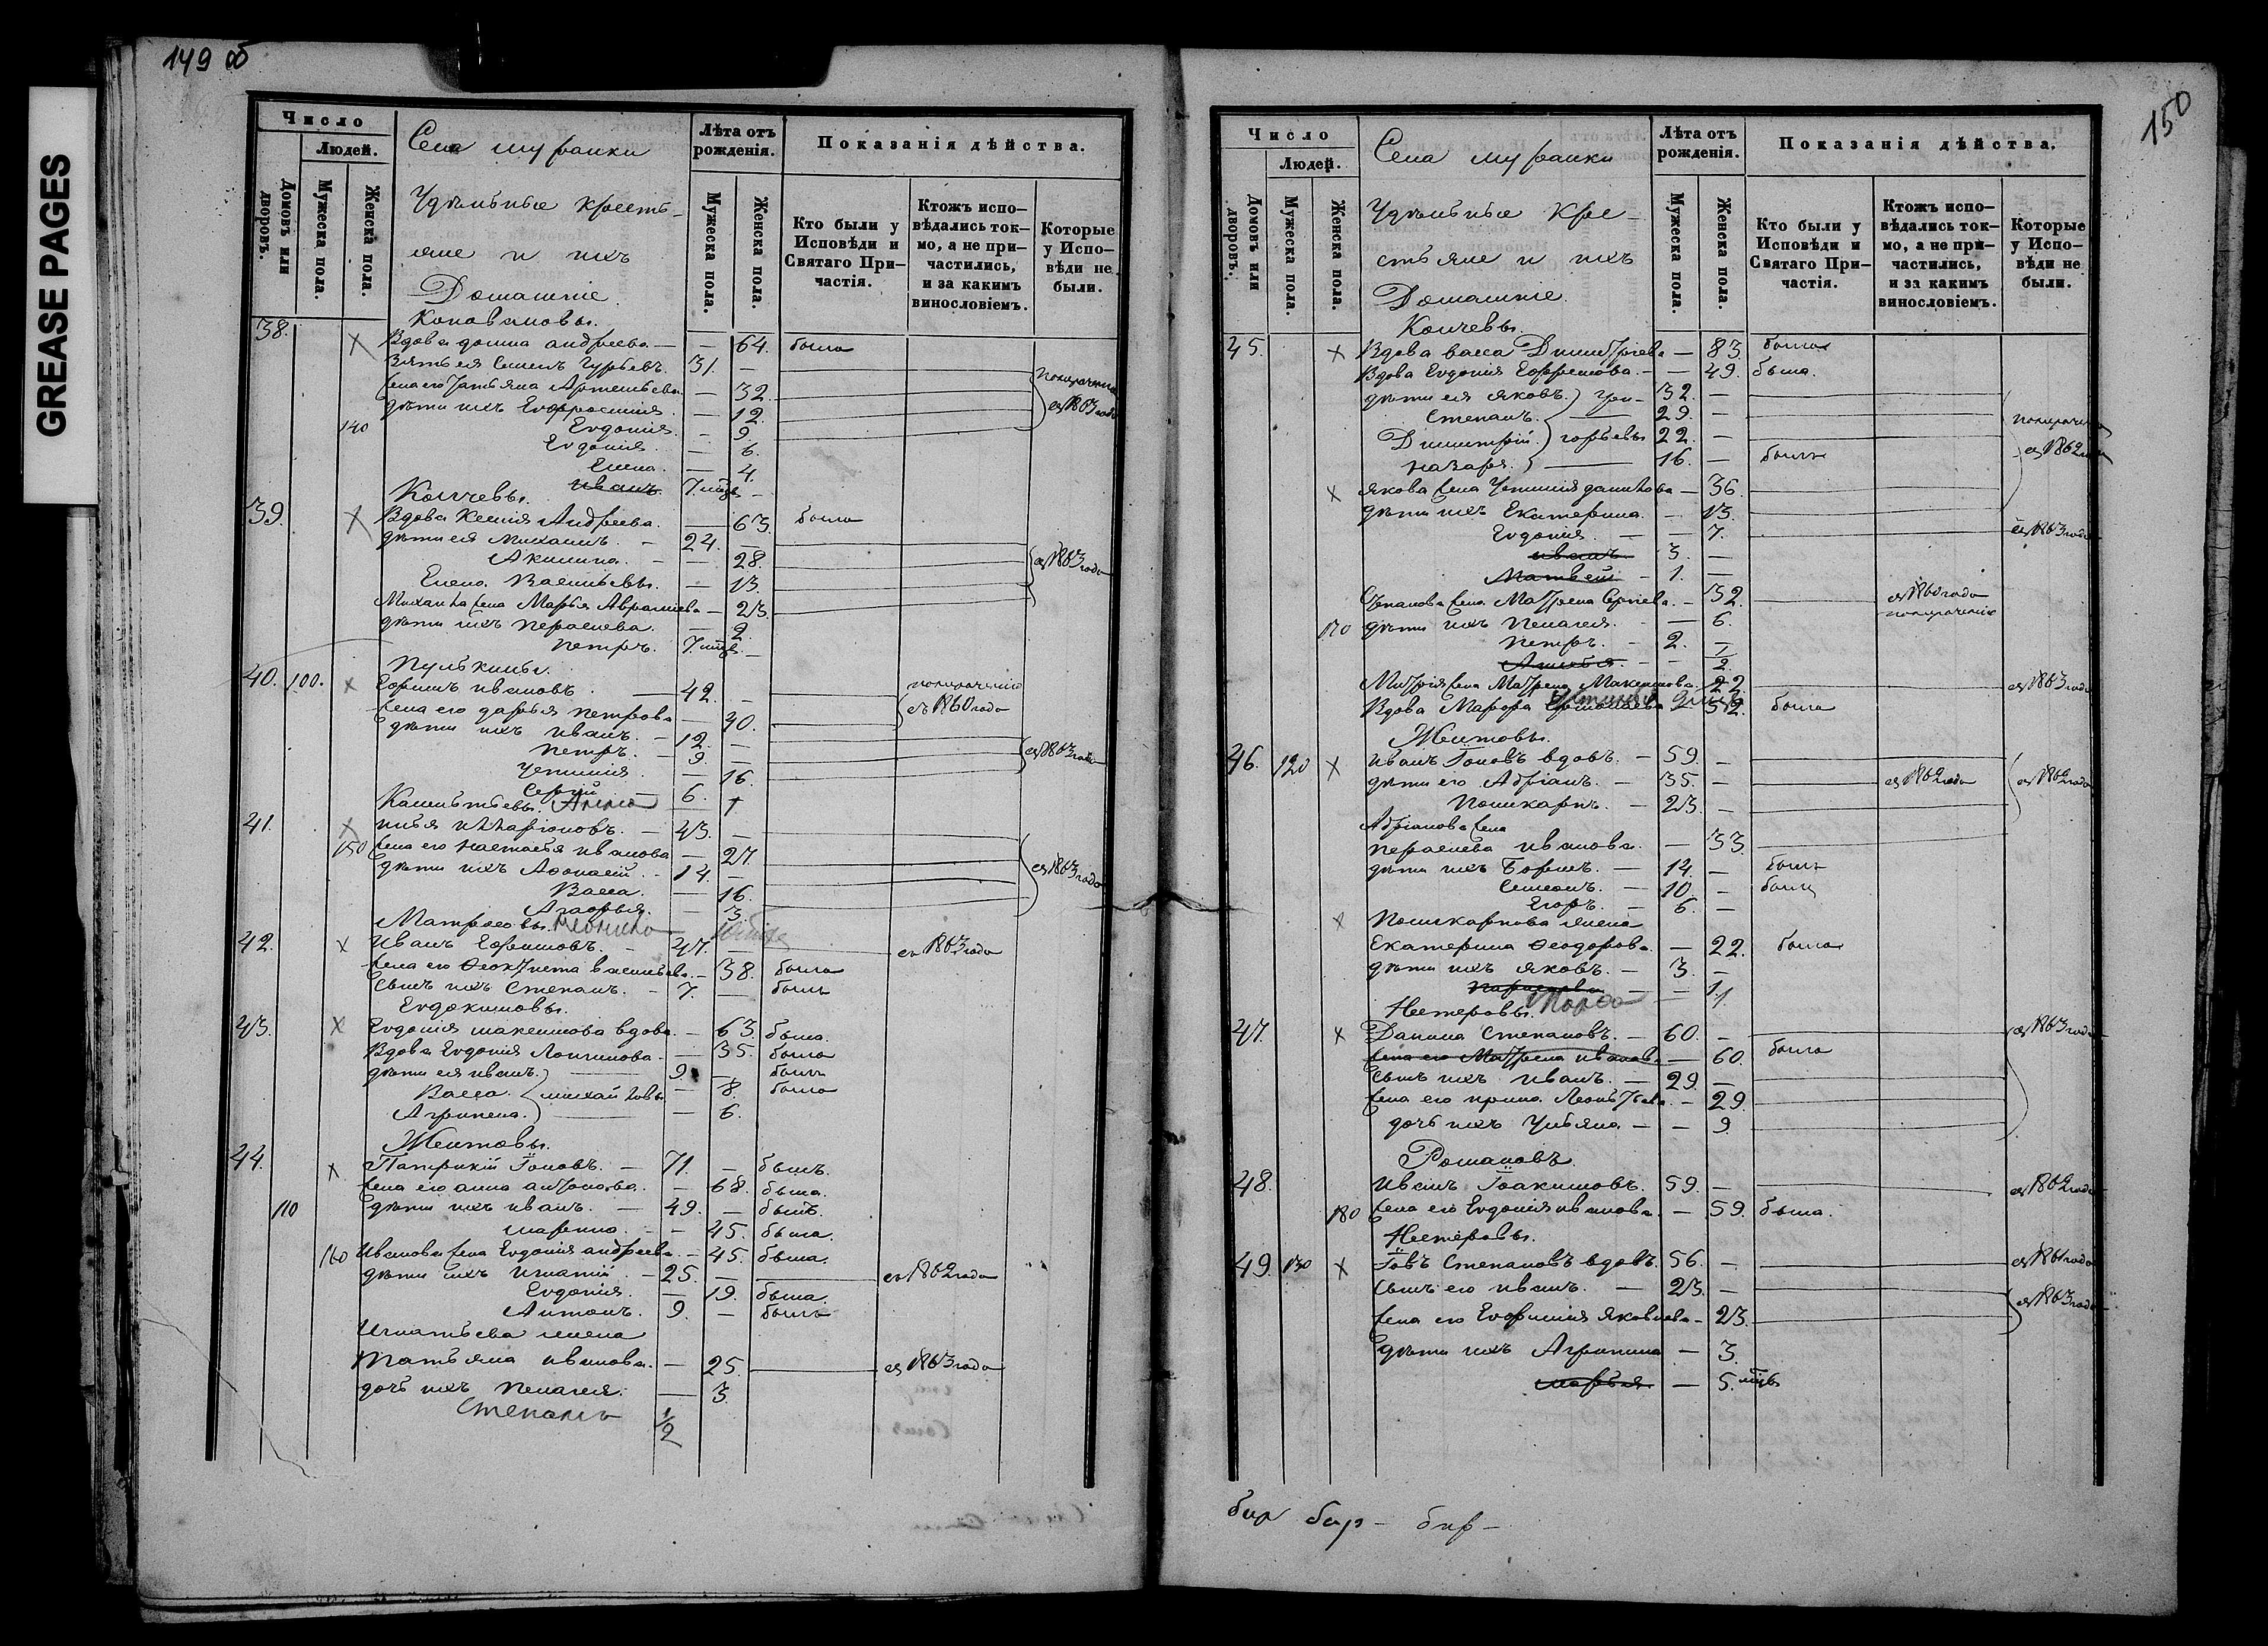 GREASE PAGES
149 об
Число
Людей.
Домовъ или дворовъ.
Мужеска пола.
Женска пола.
Села муранки
Удѣльные кресть-
яне и ихъ
Домашніе.
Лѣта отъ рожденія.
Мужеска пола.
Женска пола.
Показанія дѣйства.
Кто были у Исповѣди и Святаго При-частія.
Ктожъ испо-вѣдались ток-мо, а не при-частились, и за какимъ винословіемъ.
Которые у Испо-вѣди не были.
Коноваловы.
38. Вдова андреева — 64. была
Зять ея Семенъ Гурьевъ. 31. —
жена его Татьяна Артемьева — 32.
дѣти ихъ Евфросинія. — 12. съ 1863 года
140 Евдокия. — 9.
Евдокия. — 6.
Елена. — 4.
иванъ. 7 мцв —
Колчевы.
39. Вдова Ксенія Андреева. — 63. была
дѣти ея Михаилъ. — 24. —
Акилина. — 28. съ 1863 года
Елена Васильевы. — 13.
Михаила жена Марья Авраміева — 23.
дѣти ихъ Параскева. — 2.
Петръ. 7 мцв. —
Пулькины.
40. 100. Ефимъ ивановъ. — 42. —
жена его дарья петрова — 40. съ 1860 года
дѣти ихъ иванъ. — 12. —
Петръ. — 9. — съ 1863 года
Устинія. — 16.
Сергий — 6.
41. илья илларіоновъ. — 43. —
150 жена его настасья иванова — 27.
дѣти ихъ Афонасій. — 14. — съ 1863 года
Васса. — 16.
Агафья. — 3.
42. Иванъ Ефимовъ. — 47. — съ 1863 года
жена его Феоктиста васильева. — 38. была
сынъ ихъ Степанъ. — 7. — былъ
Евдокимовы.
43. Евдокия максимова вдова. — 63. была.
Вдова Евдокия Логинова. — 35. была
дѣти ея иванъ. 9. — былъ
Васса. михайловы — 8. была
Агрипена. — 6.
Желтовы.
44. Патрикій Іоновъ. — 71. — былъ.
жена его анна антонова. — 68. была.
110 дѣти ихъ иванъ. — 49. — былъ.
марина — 45. была.
160 Иванова жена Евдокия андреева. — 45. была.
дѣти ихъ игнатій — 25. — съ 1862 года
Евдокия. — 19. была.
Антонъ. 9. — былъ
Игнатьева жена
Татьяна иванова. — 25. съ 1863 года
дочь ихъ Пелагея. — 3.
Степанъ 1/2
150
Число
Людей.
Домовъ или дворовъ.
Мужеска пола.
Женска пола.
Села муранки
Удѣльные кре-
стьяне и ихъ
Домашніе.
Лѣта отъ рожденія.
Мужеска пола.
Женска пола.
Показанія дѣйства.
Кто были у Исповѣди и Святаго При-частія.
Ктожъ испо-вѣдались ток-мо, а не при-частились, и за какимъ винословіемъ.
Которые у Испо-вѣди не были.
Колчевы.
45. Вдова васса Димитріева — 83. была
Вдова Евдокия Ефремова. — 49. была.
дѣти ея яковъ. Гри- 32. —
Степанъ. 29. —
Димитрій. горьевы 22. —
назаръ. 16. — былъ съ 1862 года
якова жена Устиния данилова — 36.
дѣти ихъ Екатерина. — 13.
Евдокия. — 7. съ 1863 года
иванъ. 3. —
Матвей — 1. —
Степанова жена Матрена Сергіева. — 32. съ 1860 года
170 дѣти ихъ Пелагея. — 6.
Петръ. — 2. —
Митрія жена Матрена Максимова. 22. съ 1863 года
Вдова Марфа 52. была
Желтовы.
46. 120 иванъ Іоновъ вдовъ. — 59. —
дѣти его Адріанъ. — 35. — съ 1862 года съ 1862 года
Поликарпъ. — 23. —
Адріанова жена
Параскева иванова. — 33.
дѣти ихъ Борисъ. — 14. — былъ
Семенъ. — 10. — былъ
Егоръ — 6. —
Поликарпова жена
Екатерина Феодорова. — 22. была
дѣти ихъ яковъ. — 3. —
параскева — 1.
Нестеровы.
47. Данила Степановъ. — 60. — съ 1863 года
жена его Матрена иванова — 60. была
сынъ ихъ иванъ. — 29. —
жена его ирина Леонтьева. — 29.
дочь ихъ Ульяна — 9.
Романовъ.
48. иванъ Іоакимовъ. 59. — съ 1862 года
180 жена его Евдокия иванова. — 59. была.
Нестеровы.
49. 130 Іовъ Степановъ вдовъ. 56. — съ 1861 года
сынъ его иванъ. — 23. — съ 1863 года
жена его Евфимия Яковлева — 23.
дѣти ихъ Агрипина — 3.
марья — 5. мцв